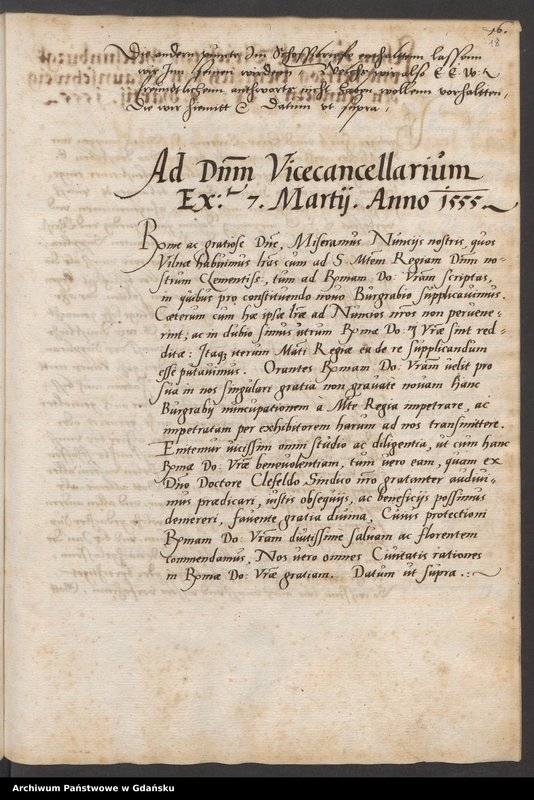 16.
18
Die andern puncte Im Schossbrieffe enthaltenn lassenn
wir Inn seinen wirdenn
freundtlichenn anthworts nicht haben wollenn vorhaltten,
Die wir hiemitt Datum ut supra.
Ad Dnm Vicecancellarium
Ex: 7. Martij. Anno 1555.
Rme ac gratiose Dne, Miseramus Nuncijs nostris, quos
Vilnæ habuimus lras cum ad S. Mtem Regiam Dnm no-
strum Clementiss:, tum ad Rmam Do: Vram scriptas,
in quibus pro constituendo nouo Burgrabio supplicauimus.
Cæterum cum hæ ipsæ lræ ad Nuncios nros non peruene-
rint; ac in dubio simus utrum Rmæ Do: Vræ sint red-
ditæ: Itaq; iterum Mati Regiæ ea de re supplicandum
esse putauimus. Orantes Rmam Do: Vram uelit pro
sua in nos singulari gratia non grauate nouam hanc
Burgrabij nuncupationem à Mte Regia impetrare, ac
impetratam per exhibitorem harum ad nos transmittere.
Enitemur uicissim omni studio ac diligentia, ut cum hanc
Rmæ Do: Vræ beneuolentiam, tum uero eam, quam ex
Dno Doctore Clefeldo Sindico nro gratanter audiui-
mus prædicari, iustis obsequijs, ac beneficijs possimus
demereri, fauente gratia diuina, Cuius protectioni
Rmam Do: Vram diutissime saluam ac florentem
commendamus, Nos uero omnes Ciuitatis rationes
in Rmæ Do: Vræ gratiam. Datum ut supra.
Archiwum Państwowe w Gdańsku